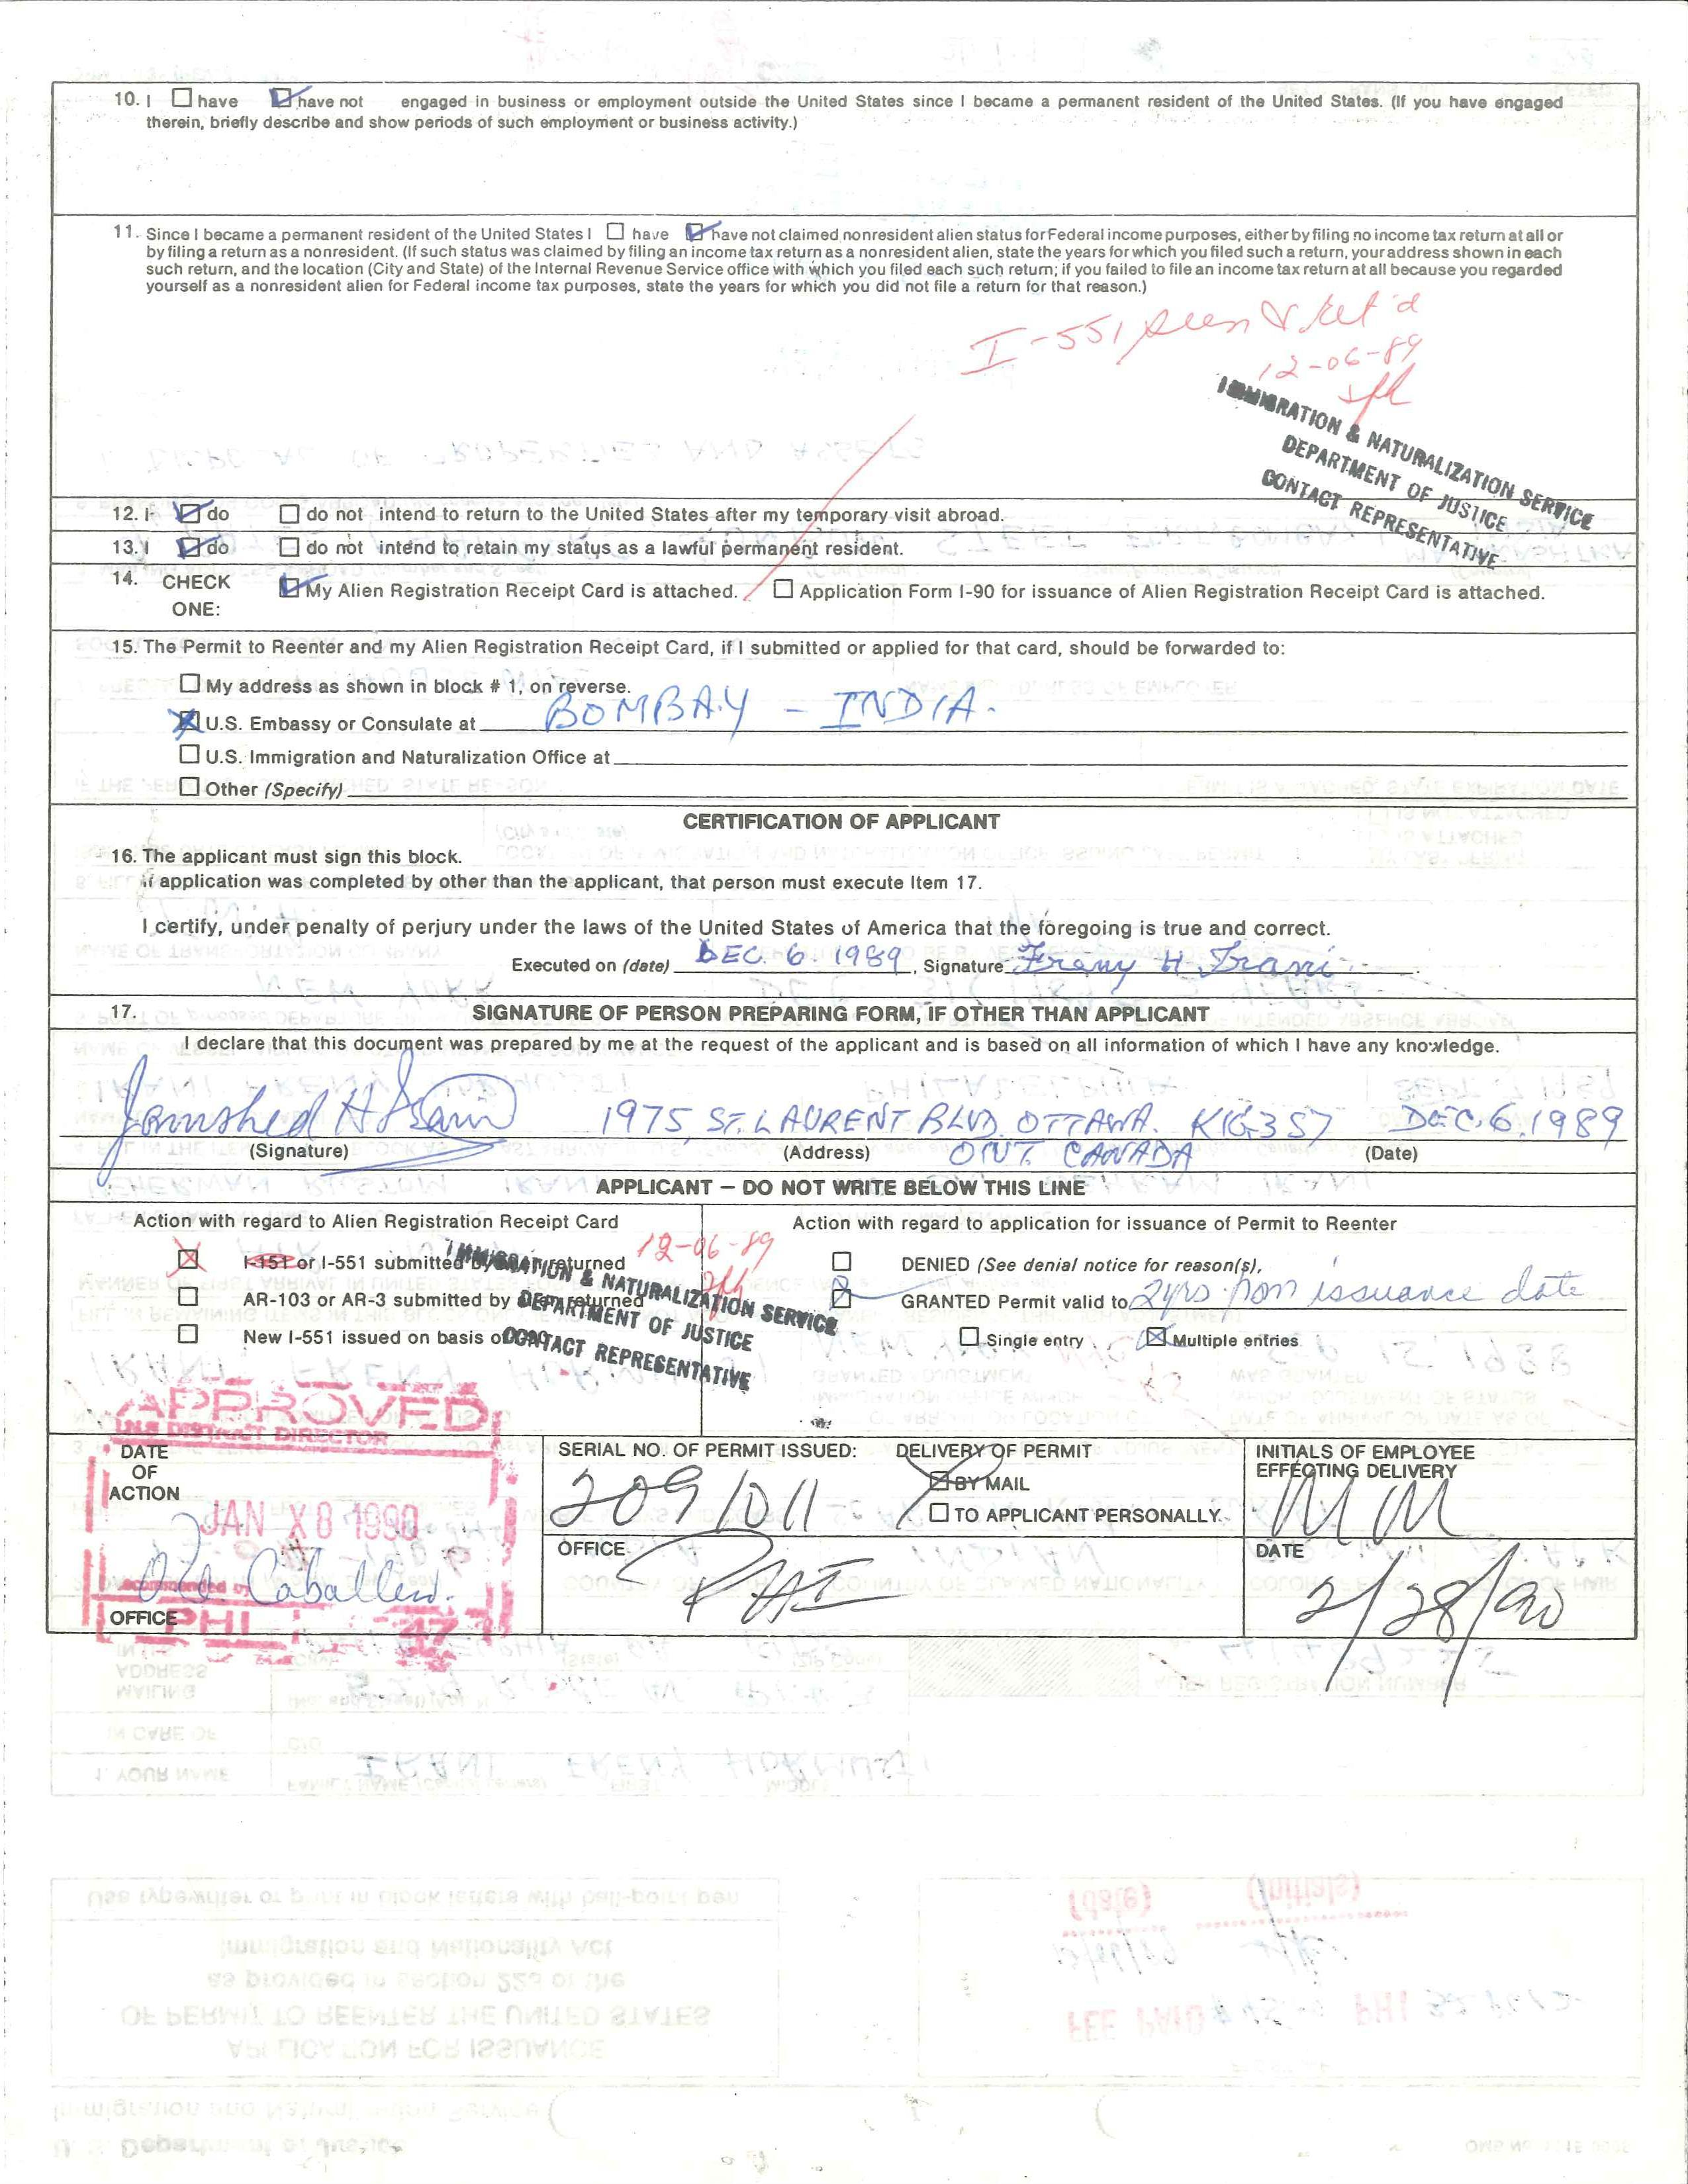 10. I ☐ have ☑ have not engaged in business or employment outside the United States since I became a permanent resident of the United States. (If you have engaged
therein, briefly describe and show periods of such employment or business activity.)
11. Since I became a permanent resident of the United States I ☐ have ☑ have not claimed nonresident alien status for Federal income purposes, either by filing no income tax return at all or
by filing a return as a nonresident. (If such status was claimed by filing an income tax return as a nonresident alien, state the years for which you filed such a return, your address shown in each
such return, and the location (City and State) of the Internal Revenue Service office with which you filed each such return; if you failed to file an income tax return at all because you regarded
yourself as a nonresident alien for Federal income tax purposes, state the years for which you did not file a return for that reason.)
I-551 seen & ret'd
12-06-89
IMMIGRATION & NATURALIZATION SERVICE
DEPARTMENT OF JUSTICE
CONTACT REPRESENTATIVE
12. I ☑ do ☐ do not intend to return to the United States after my temporary visit abroad.
13. I ☑ do ☐ do not intend to retain my status as a lawful permanent resident.
14. CHECK ONE: ☑ My Alien Registration Receipt Card is attached. ☐ Application Form I-90 for issuance of Alien Registration Receipt Card is attached.
15. The Permit to Reenter and my Alien Registration Receipt Card, if I submitted or applied for that card, should be forwarded to:
☐ My address as shown in block # 1, on reverse.
☒ U.S. Embassy or Consulate at BOMBAY - INDIA.
☐ U.S. Immigration and Naturalization Office at
☐ Other (Specify)
CERTIFICATION OF APPLICANT
16. The applicant must sign this block.
If application was completed by other than the applicant, that person must execute Item 17.
I certify, under penalty of perjury under the laws of the United States of America that the foregoing is true and correct.
Executed on (date) DEC. 6. 1989, Signature Freny H Irani
17. SIGNATURE OF PERSON PREPARING FORM, IF OTHER THAN APPLICANT
I declare that this document was prepared by me at the request of the applicant and is based on all information of which I have any knowledge.
Jamshed H Irani 1975, ST. LAURENT BLVD. OTTAWA. K1G3S7 DEC. 6. 1989
(Signature) (Address) ONT. CANADA (Date)
APPLICANT — DO NOT WRITE BELOW THIS LINE
Action with regard to Alien Registration Receipt Card
☒ I-151 or I-551 submitted by returned 12-06-89
☐ AR-103 or AR-3 submitted by returned
☐ New I-551 issued on basis of
IMMIGRATION & NATURALIZATION SERVICE
DEPARTMENT OF JUSTICE
CONTACT REPRESENTATIVE
Action with regard to application for issuance of Permit to Reenter
☐ DENIED (See denial notice for reason(s),
☒ GRANTED Permit valid to 2yrs from issuance date
☐ Single entry ☒ Multiple entries
APPROVED
INS DISTRICT DIRECTOR
DATE OF ACTION
JAN X 8 1990
Recommended by
Caballero.
OFFICE PHI 477
SERIAL NO. OF PERMIT ISSUED: 2091011
DELIVERY OF PERMIT
☒ BY MAIL
☐ TO APPLICANT PERSONALLY
INITIALS OF EMPLOYEE
EFFECTING DELIVERY
MM
OFFICE PHI
DATE 2/28/90